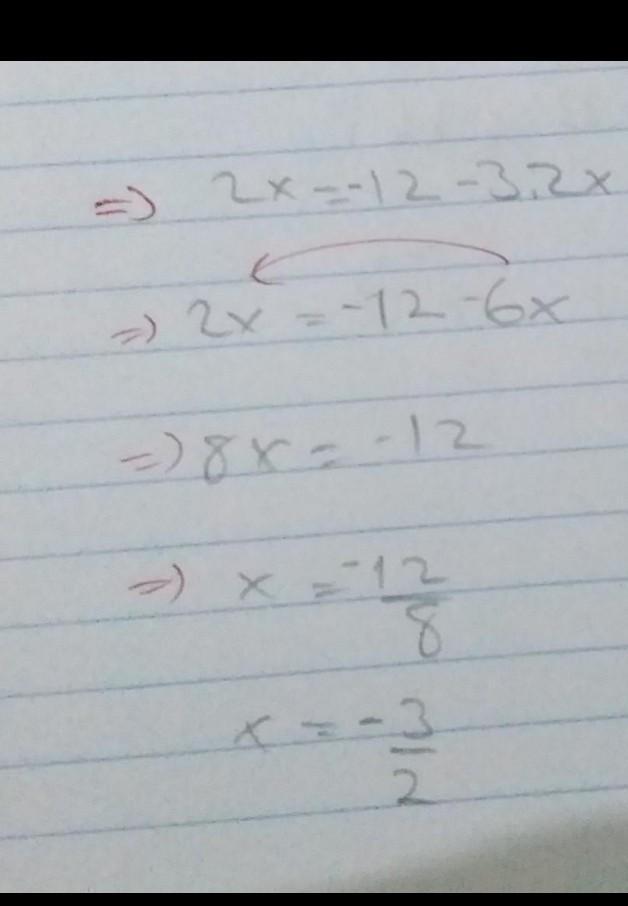 ⇒ 2x = -12 - 3.2x
⇒ 2x = -12 - 6x
⇒ 8x = -12
⇒ x = -12/8
x = -3/2